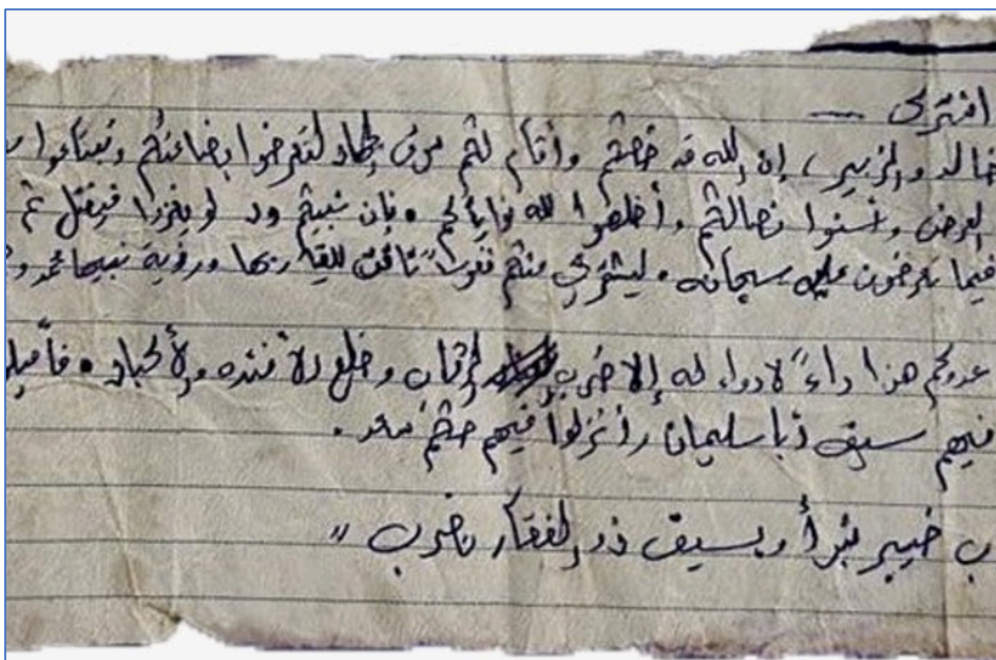 اشترى —
خالد والزبير، إن الله قد خصكم وأقام لكم سوق جهاد لتعرضوا بضاعتكم وتبتاعوا
العرض وأسنوا نصالكم وأخلصوا لله نواياكم. فإن نبيكم ود لو يغزوا فيقتل ثم
فيما تعرضون عليه سبحانه. ليشتري منكم نفوساً تاقت للقاء ربها ورؤية نبيها محمد
عدوكم هذا داءً لا دواء له إلا ضرب الرقاب وخلع الأفئدة والأكباد.
فيهم سيف أبا سليمان وأنزلوا فيهم حكم سعد.
خيبر نبرأ وبسيف ذو الفقار نضرب "